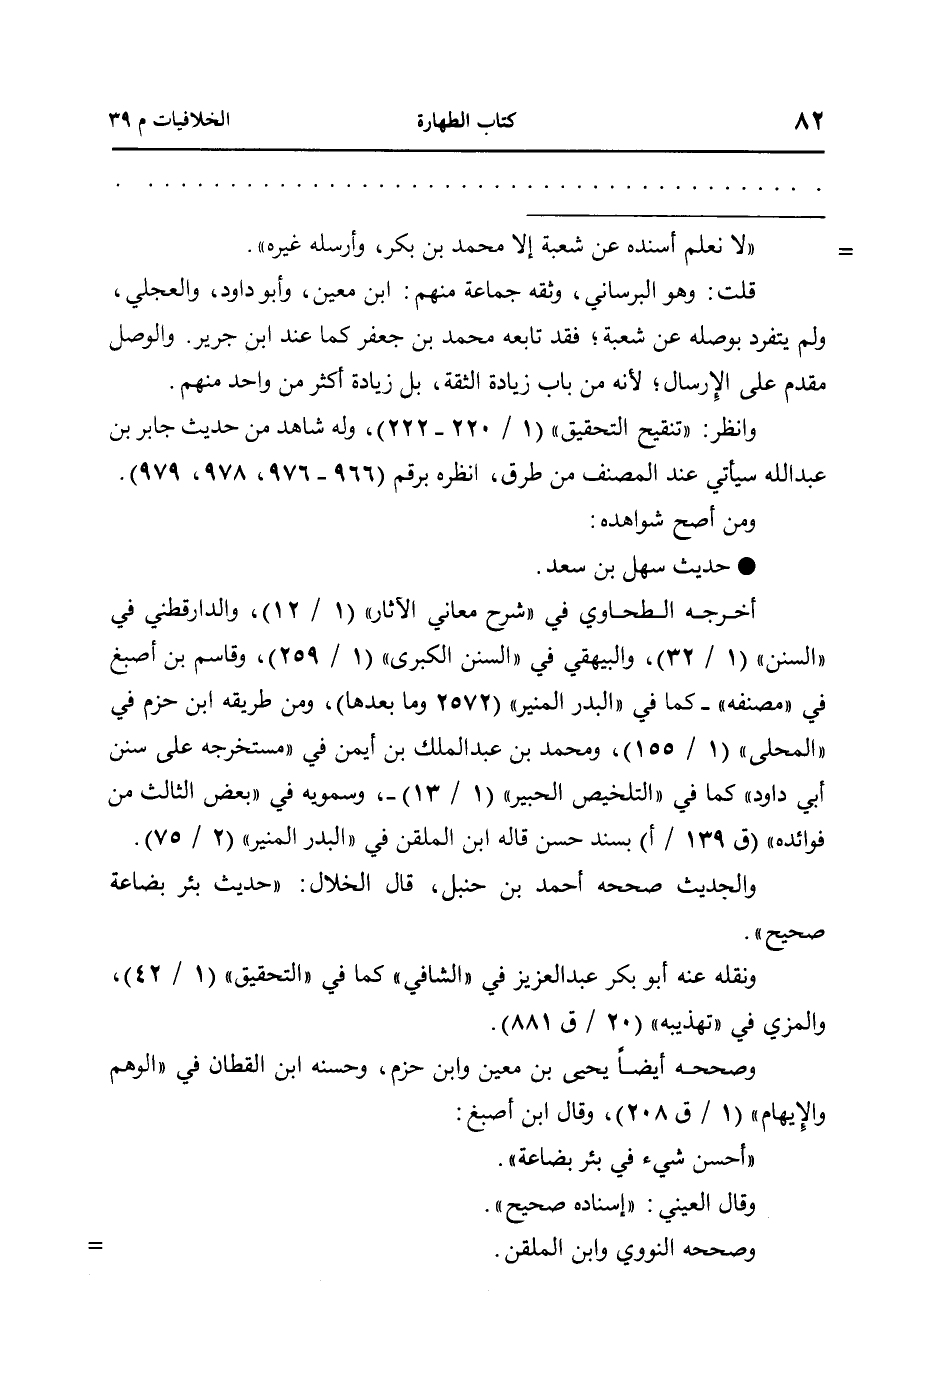 ٨٢ كتاب الطهارة الخلافيات م ٣٩
= «لا نعلم أسنده عن شعبة إلا محمد بن بكر، وأرسله غيره».
قلت: وهو البرساني، وثقه جماعة منهم: ابن معين، وأبو داود، والعجلي،
ولم يتفرد بوصله عن شعبة؛ فقد تابعه محمد بن جعفر كما عند ابن جرير. والوصل
مقدم على الإرسال؛ لأنه من باب زيادة الثقة، بل زيادة أكثر من واحد منهم.
وانظر: «تنقيح التحقيق» (١ / ٢٢٠ ـ ٢٢٢)، وله شاهد من حديث جابر بن
عبدالله سيأتي عند المصنف من طرق، انظره برقم (٩٦٦ ـ ٩٧٦، ٩٧٨، ٩٧٩).
ومن أصح شواهده:
● حديث سهل بن سعد.
أخرجه الطحاوي في «شرح معاني الآثار» (١ / ١٢)، والدارقطني في
«السنن» (١ / ٣٢)، والبيهقي في «السنن الكبرى» (١ / ٢٥٩)، وقاسم بن أصبغ
في «مصنفه» ـ كما في «البدر المنير» (٢٥٧٢ وما بعدها)، ومن طريقه ابن حزم في
«المحلى» (١ / ١٥٥)، ومحمد بن عبدالملك بن أيمن في «مستخرجه على سنن
أبي داود» كما في «التلخيص الحبير» (١ / ١٣) ـ، وسمويه في «بعض الثالث من
فوائده» (ق ١٣٩ / أ) بسند حسن قاله ابن الملقن في «البدر المنير» (٢ / ٧٥).
والحديث صححه أحمد بن حنبل، قال الخلال: «حديث بئر بضاعة
صحيح».
ونقله عنه أبو بكر عبدالعزيز في «الشافي» كما في «التحقيق» (١ / ٤٢)،
والمزي في «تهذيبه» (٢٠ / ق ٨٨١).
وصححه أيضاً يحيى بن معين وابن حزم، وحسنه ابن القطان في «الوهم
والإيهام» (١ / ق ٢٠٨)، وقال ابن أصبغ:
«أحسن شيء في بئر بضاعة».
وقال العيني: «إسناده صحيح».
وصححه النووي وابن الملقن. =